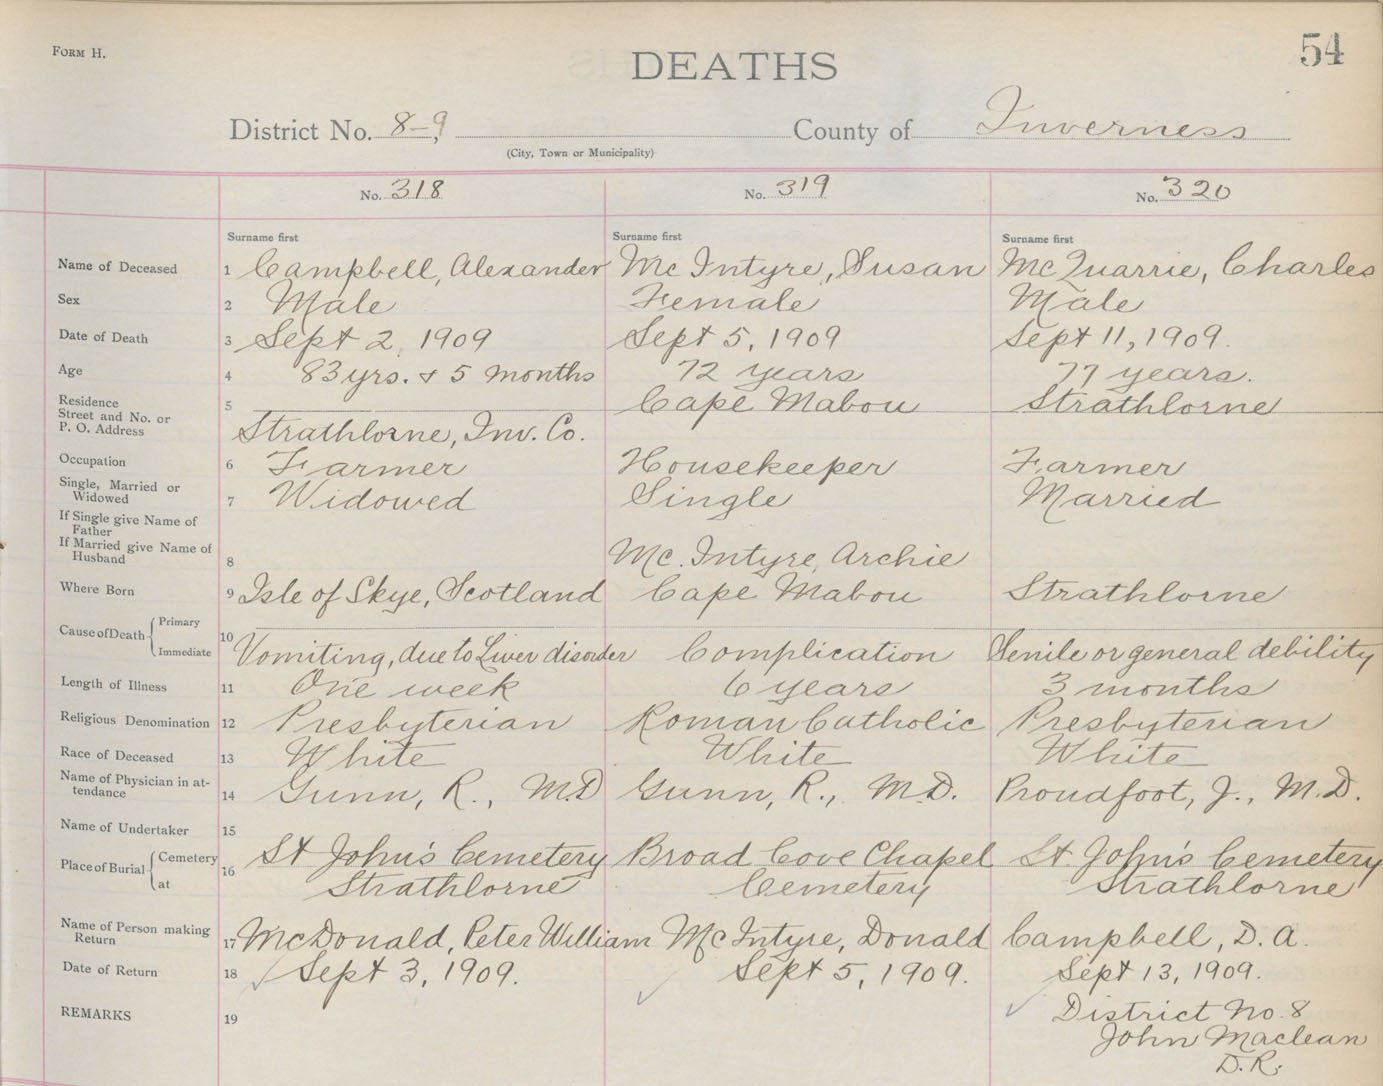 FORM H.
DEATHS
54
District No. 8-9, County of Inverness
(City, Town or Municipality)
No. 318 No. 319 No. 320
Surname first Surname first Surname first
Name of Deceased 1 Campbell, Alexander Mc Intyre, Susan McQuarrie, Charles
Sex 2 Male Female Male
Date of Death 3 Sept 2, 1909 Sept 5, 1909 Sept 11, 1909.
Age 4 83 yrs. & 5 months 72 years 77 years.
Residence
Street and No. or
P. O. Address
5 Strathlorne, Inv. Co. Cape Mabou Strathlorne
Occupation 6 Farmer Housekeeper Farmer
Single, Married or
Widowed
7 Widowed Single Married
If Single give Name of
Father
If Married give Name of
Husband
8 Mc. Intyre, Archie
Where Born 9 Isle of Skye, Scotland Cape Mabou Strathlorne
Cause of Death { Primary
Immediate
10 Vomiting, due to Liver disorder Complication Senile or general debility
Length of Illness 11 One week 6 years 3 months
Religious Denomination 12 Presbyterian Roman Catholic Presbyterian
Race of Deceased 13 White White White
Name of Physician in at-
tendance
14 Gunn, R., M.D Gunn, R., M.D. Proudfoot, J., M.D.
Name of Undertaker 15
Place of Burial { Cemetery
at
16 St John's Cemetery Broad Cove Chapel St. John's Cemetery
Strathlorne Cemetery Strathlorne
Name of Person making
Return
17 McDonald, Peter William McIntyre, Donald Campbell, D. A.
Date of Return 18 Sept 3, 1909. Sept 5, 1909. Sept 13, 1909.
REMARKS 19 District No. 8
John Maclean
D.R.